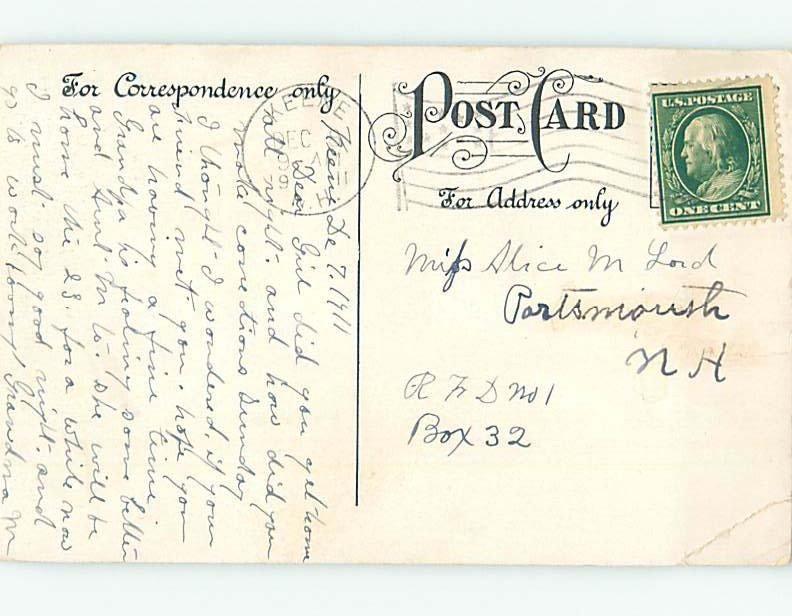 For Correspondence only
Keene De 7. 1911
Dear Girl did you get home
all right - and how did you
make conections Sunday
I thought I wondered, if your
friend met you. hope you
are having a fine time.
Grandpa is feeling some better
and Aunt M to. She will be
home the 23. for a while now
I must say good night - and
go to work Loving Grandma M
POST CARD
For Address only
U.S. POSTAGE
ONE CENT
KEENE
DEC
Miss Alice M Lord
Portsmouth
N H
R F D No 1
Box 32